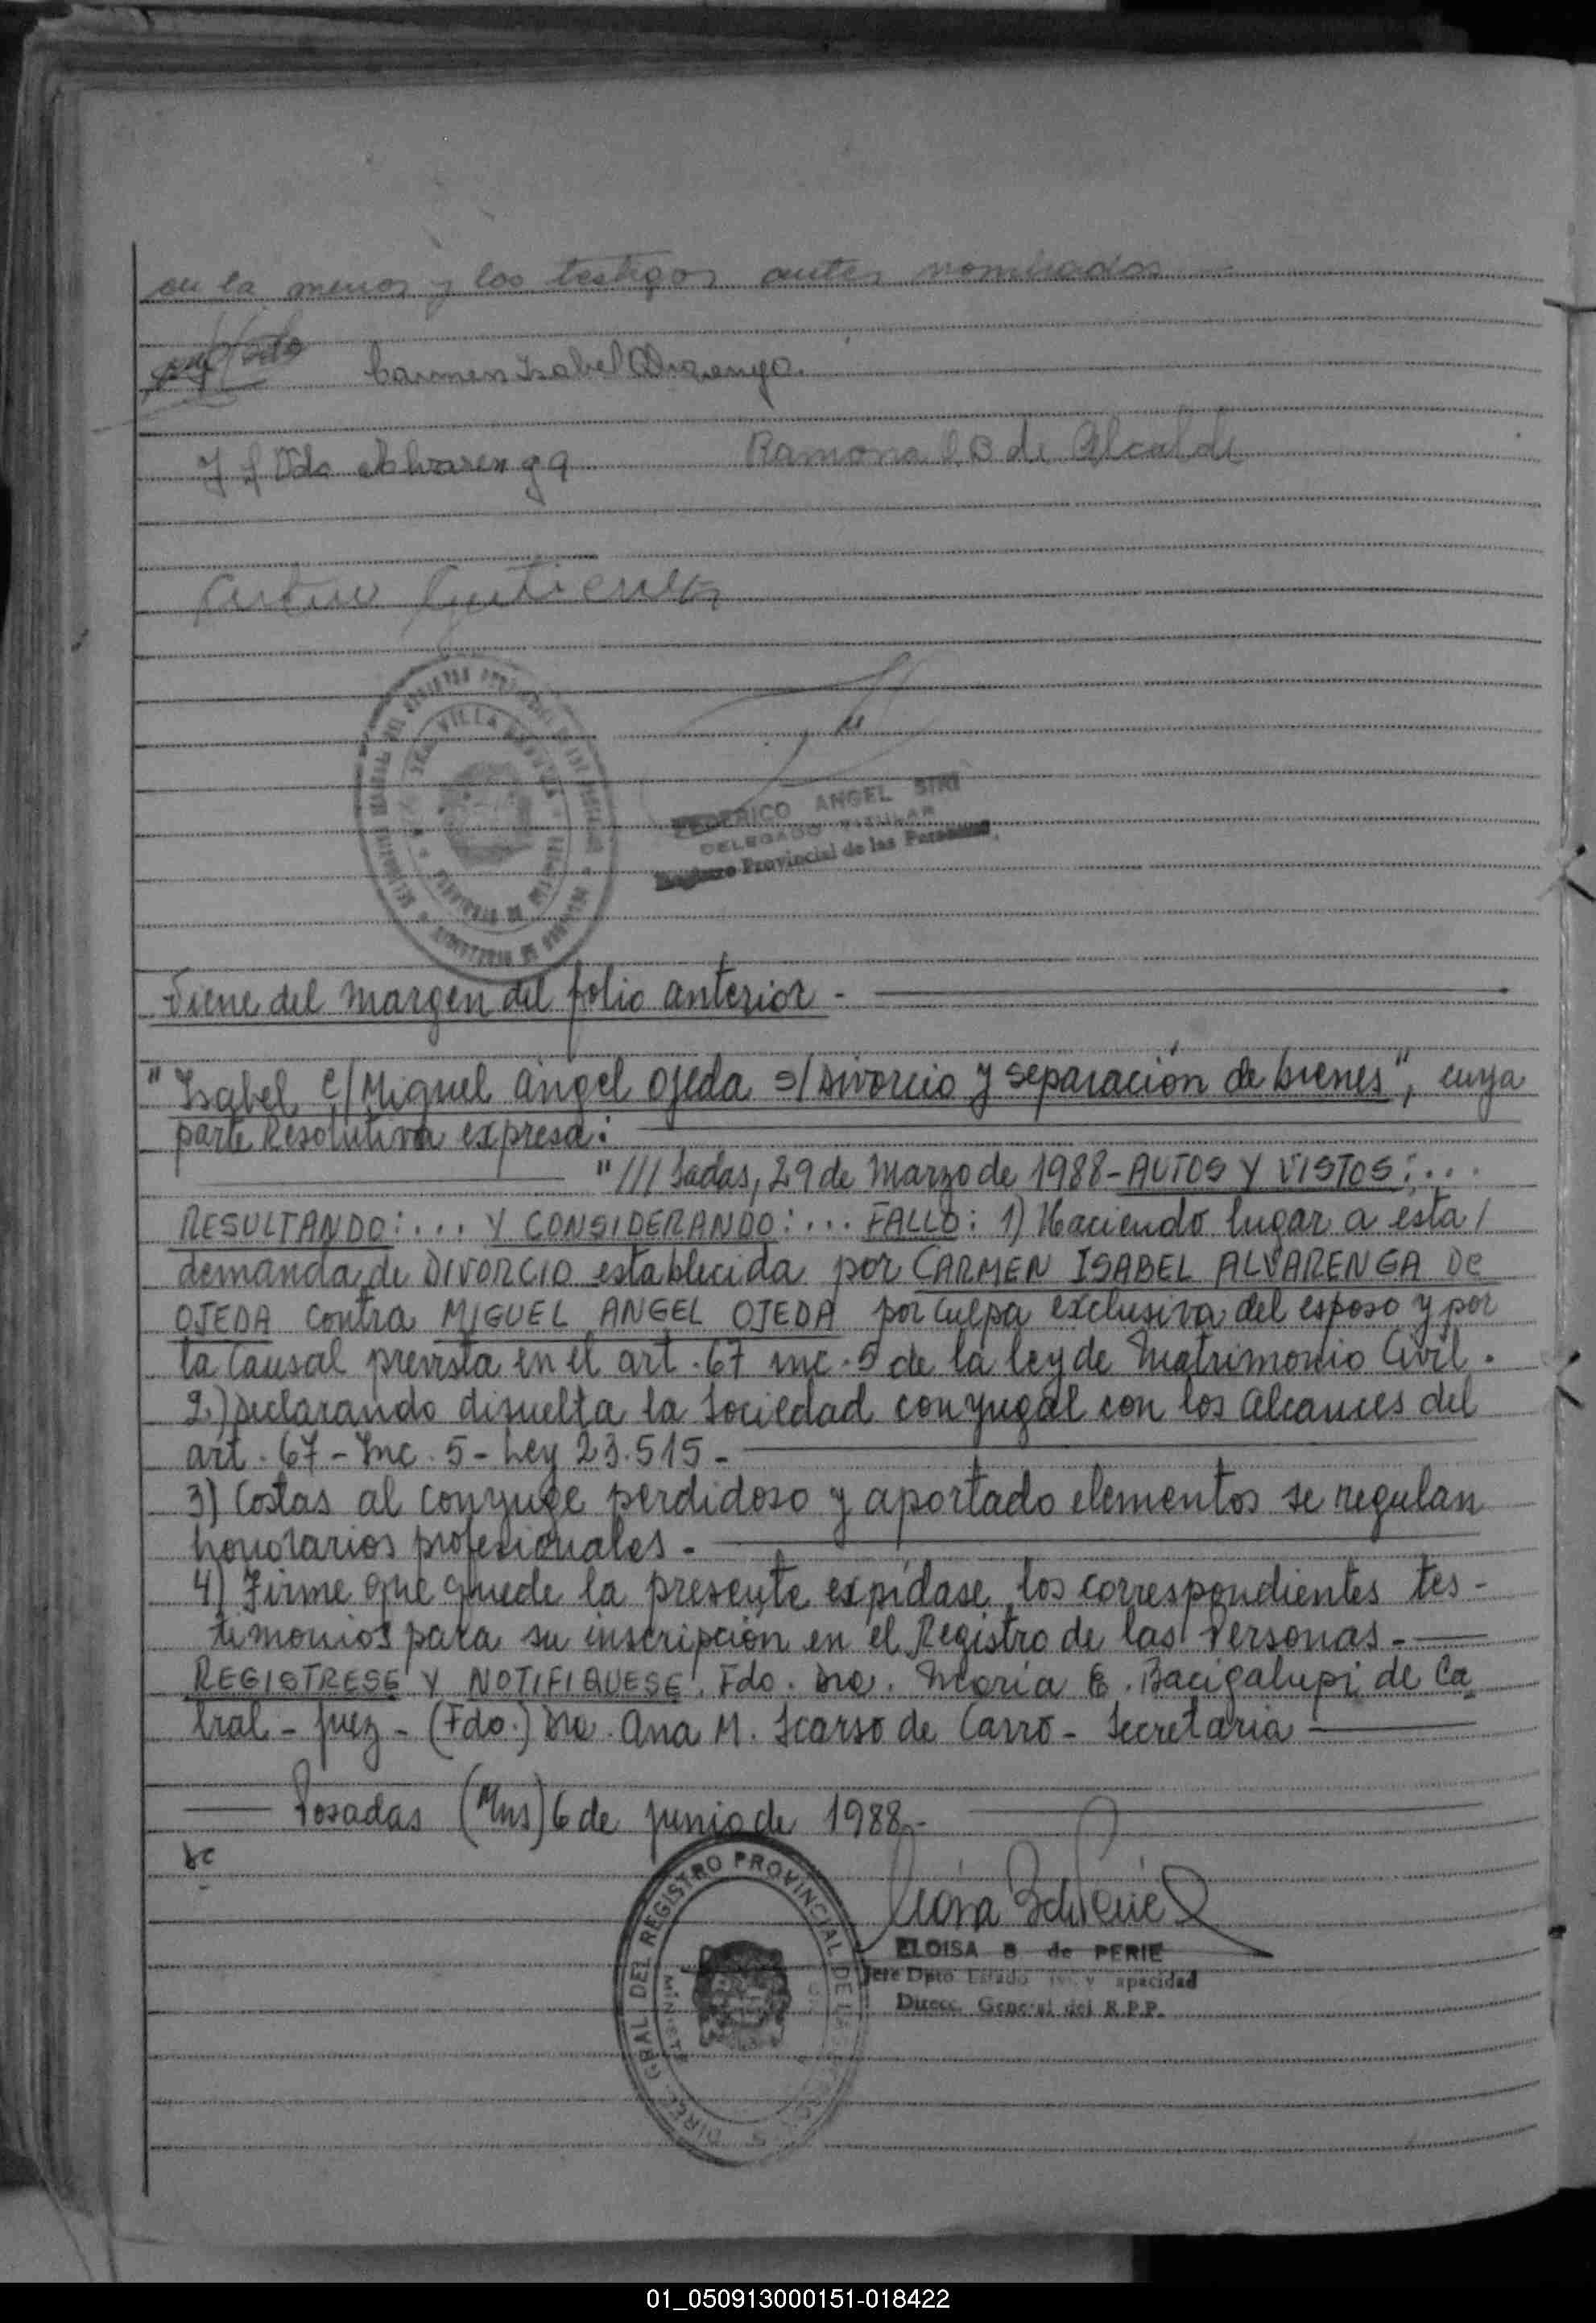 en la menor y los testigos antes nombrados
Carmen Isabel Alvarenga.
Vda Alvarenga
Ramona I. B de Alcalde
Gutierrez
VILLA
FEDERICO ANGEL SIRI
DELEGADO TITULAR
Registro Provincial de las Personas
Viene del margen del folio anterior -
"Isabel c/Miguel angel Ojeda s/Divorcio y separación de bienes", cuya
parte Resolutiva expresa:
"///sadas, 29 de Marzo de 1988-AUTOS Y VISTOS:...
RESULTANDO:... Y CONSIDERANDO:... FALLO: 1) Haciendo lugar a esta/
demanda de DIVORCIO establecida por CARMEN ISABEL ALVARENGA DE
OJEDA contra MIGUEL ANGEL OJEDA por culpa exclusiva del esposo y por
la causal prevista en el art. 67 inc. 5 de la ley de Matrimonio Civil.
2.) Declarando disuelta la Sociedad conyugal con los alcances del
art. 67 - Inc. 5 - Ley 23.515 -
3) Costas al conyuge perdidoso y aportado elementos se regulan
honorarios profesionales -
4) Firme que quede la presente expídase los correspondientes tes-
timonios para su inscripción en el Registro de las Personas -
REGISTRESE Y NOTIFIQUESE. Fdo. Dra. María E. Bacigalupi de Ca-
tral - Juez - (Fdo.) Dra. Ana M. Scarso de Carro - Secretaria
Posadas (Mns) 6 de junio de 1988 -
DIREC. GRAL DEL REGISTRO PROVINCIAL DE
MINISTE
ELOISA B de PERIE
Jefe Dpto Estado y apacidad
Direcc. General del R.P.P.
01_050913000151-018422